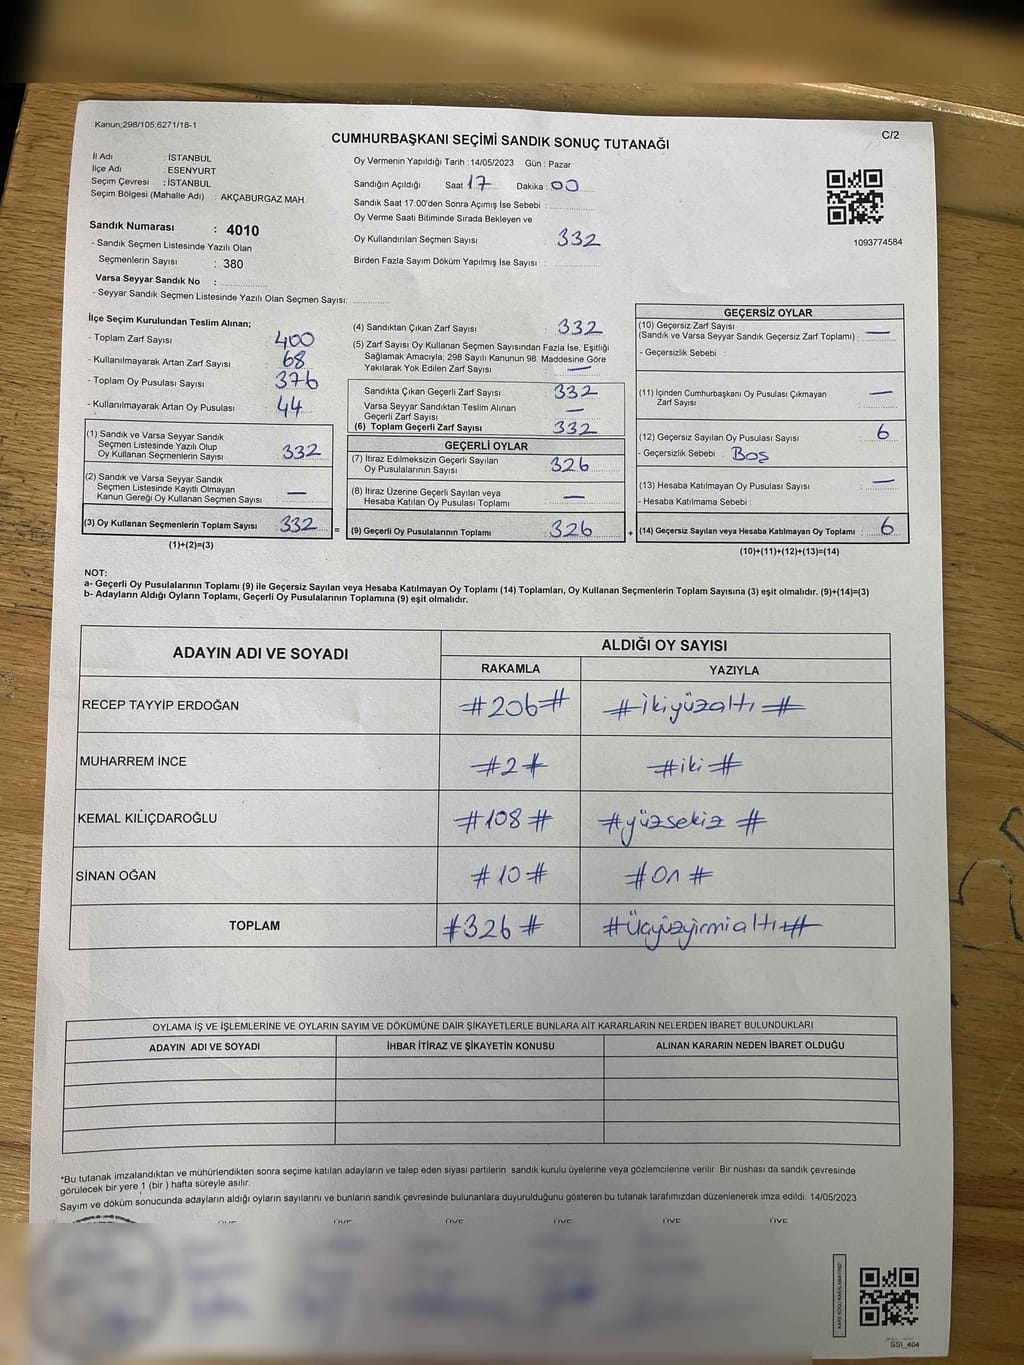 Kanun;298/105,6271/18-1
C/2
CUMHURBAŞKANI SEÇİMİ SANDIK SONUÇ TUTANAĞI
İl Adı : İSTANBUL
İlçe Adı : ESENYURT
Seçim Çevresi : İSTANBUL
Seçim Bölgesi (Mahalle Adı) : AKÇABURGAZ MAH.
Sandık Numarası : 4010
- Sandık Seçmen Listesinde Yazılı Olan
Seçmenlerin Sayısı : 380
Varsa Seyyar Sandık No :
- Seyyar Sandık Seçmen Listesinde Yazılı Olan Seçmen Sayısı:
Oy Vermenin Yapıldığı Tarih :14/05/2023 Gün : Pazar
Sandığın Açıldığı Saat 17 Dakika : 00
Sandık Saat 17:00'den Sonra Açımış İse Sebebi :
Oy Verme Saati Bitiminde Sırada Bekleyen ve
Oy Kullandırılan Seçmen Sayısı : 332
Birden Fazla Sayım Döküm Yapılmış İse Sayısı :
1093774584
İlçe Seçim Kurulundan Teslim Alınan;
- Toplam Zarf Sayısı : 400
- Kullanılmayarak Artan Zarf Sayısı : 68
- Toplam Oy Pusulası Sayısı : 376
- Kullanılmayarak Artan Oy Pusulası : 44
(1) Sandık ve Varsa Seyyar Sandık
Seçmen Listesinde Yazılı Olup
Oy Kullanan Seçmenlerin Sayısı : 332
(2) Sandık ve Varsa Seyyar Sandık
Seçmen Listesinde Kayıtlı Olmayan
Kanun Gereği Oy Kullanan Seçmen Sayısı : —
(3) Oy Kullanan Seçmenlerin Toplam Sayısı : 332 =
(1)+(2)=(3)
(4) Sandıktan Çıkan Zarf Sayısı : 332
(5) Zarf Sayısı Oy Kullanan Seçmen Sayısından Fazla İse, Eşitliği
Sağlamak Amacıyla; 298 Sayılı Kanunun 98. Maddesine Göre
Yakılarak Yok Edilen Zarf Sayısı : —
Sandıkta Çıkan Geçerli Zarf Sayısı : 332
Varsa Seyyar Sandıktan Teslim Alınan
Geçerli Zarf Sayısı : —
(6) Toplam Geçerli Zarf Sayısı : 332
GEÇERLİ OYLAR
(7) İtiraz Edilmeksizin Geçerli Sayılan
Oy Pusulalarının Sayısı : 326
(8) İtiraz Üzerine Geçerli Sayılan veya
Hesaba Katılan Oy Pusulası Toplamı : —
(9) Geçerli Oy Pusulalarının Toplamı : 326 +
GEÇERSİZ OYLAR
(10) Geçersiz Zarf Sayısı
(Sandık ve Varsa Seyyar Sandık Geçersiz Zarf Toplamı) : —
- Geçersizlik Sebebi :
(11) İçinden Cumhurbaşkanı Oy Pusulası Çıkmayan
Zarf Sayısı : —
(12) Geçersiz Sayılan Oy Pusulası Sayısı : 6
- Geçersizlik Sebebi : Boş
(13) Hesaba Katılmayan Oy Pusulası Sayısı : —
- Hesaba Katılmama Sebebi :
(14) Geçersiz Sayılan veya Hesaba Katılmayan Oy Toplamı : 6
(10)+(11)+(12)+(13)=(14)
NOT:
a- Geçerli Oy Pusulalarının Toplamı (9) ile Geçersiz Sayılan veya Hesaba Katılmayan Oy Toplamı (14) Toplamları, Oy Kullanan Seçmenlerin Toplam Sayısına (3) eşit olmalıdır. (9)+(14)=(3)
b- Adayların Aldığı Oyların Toplamı, Geçerli Oy Pusulalarının Toplamına (9) eşit olmalıdır.
ADAYIN ADI VE SOYADI ALDIĞI OY SAYISI
RAKAMLA YAZIYLA
RECEP TAYYİP ERDOĞAN #206# #ikiyüzaltı#
MUHARREM İNCE #2# #iki#
KEMAL KILIÇDAROĞLU #108# #yüzsekiz#
SİNAN OĞAN #10# #On#
TOPLAM #326# #Üçyüzyirmialtı#
OYLAMA İŞ VE İŞLEMLERİNE VE OYLARIN SAYIM VE DÖKÜMÜNE DAİR ŞİKAYETLERLE BUNLARA AİT KARARLARIN NELERDEN İBARET BULUNDUKLARI
ADAYIN ADI VE SOYADI İHBAR İTİRAZ VE ŞİKAYETİN KONUSU ALINAN KARARIN NEDEN İBARET OLDUĞU
*Bu tutanak imzalandıktan ve mühürlendikten sonra seçime katılan adayların ve talep eden siyasi partilerin sandık kurulu üyelerine veya gözlemcilerine verilir. Bir nüshası da sandık çevresinde
görülecek bir yere 1 (bir ) hafta süreyle asılır.
Sayım ve döküm sonucunda adayların aldığı oyların sayılarını ve bunların sandık çevresinde bulunanlara duyurulduğunu gösteren bu tutanak tarafımızdan düzenlenerek imza edildi. 14/05/2023
ÜYE ÜYE ÜYE ÜYE ÜYE ÜYE
SSI_404